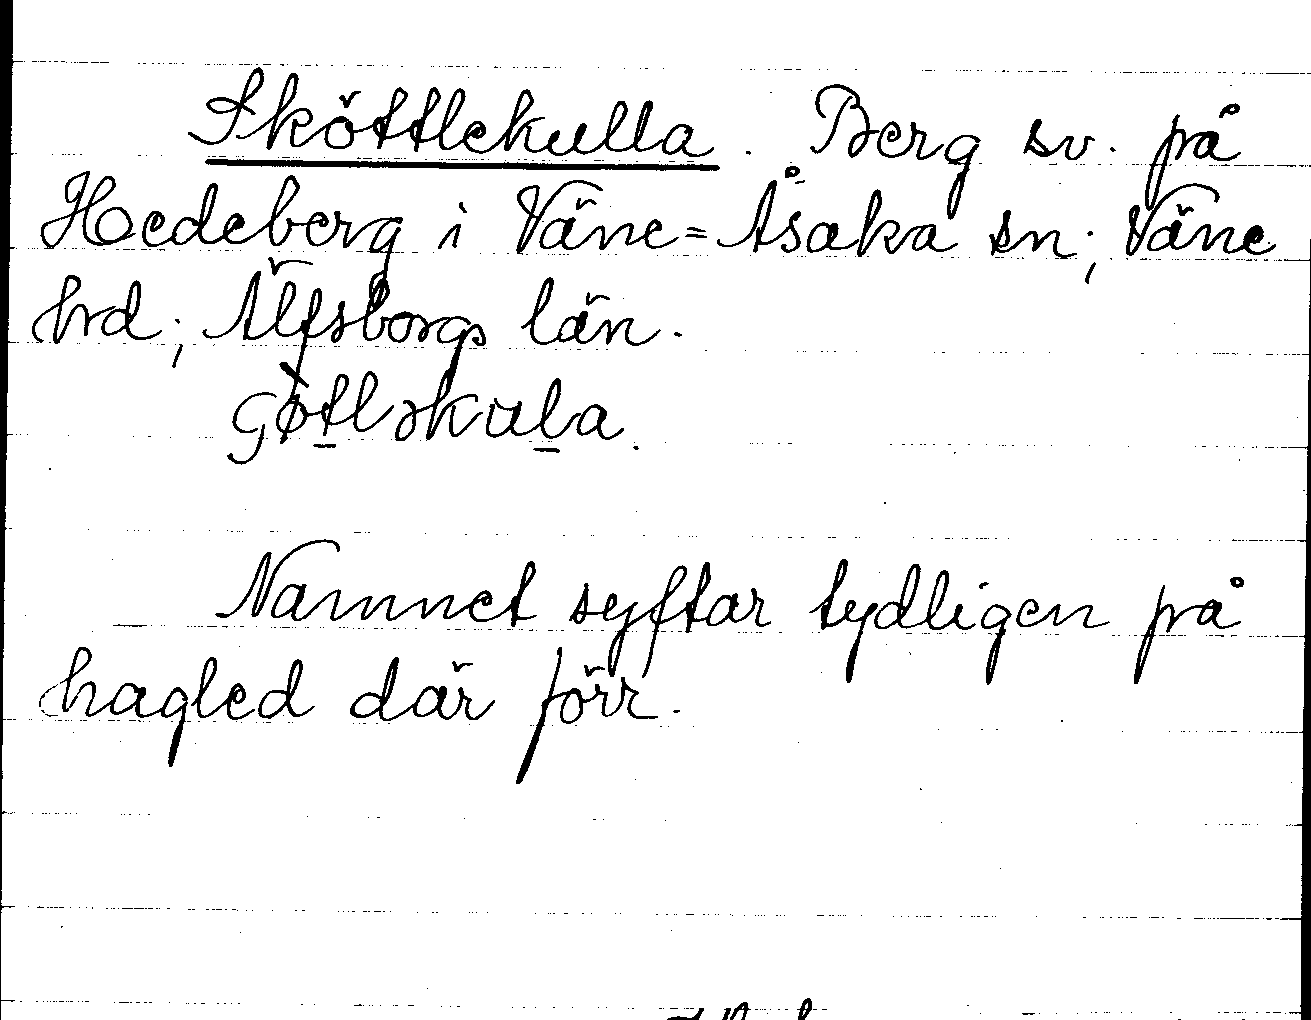 Sköttlekulla. Berg sv. på
Hedeberg i Väne=Åsaka sn; Väne
hrd; Älfsborgs län.
Namnet syftar tydligen på
hagled där förr.